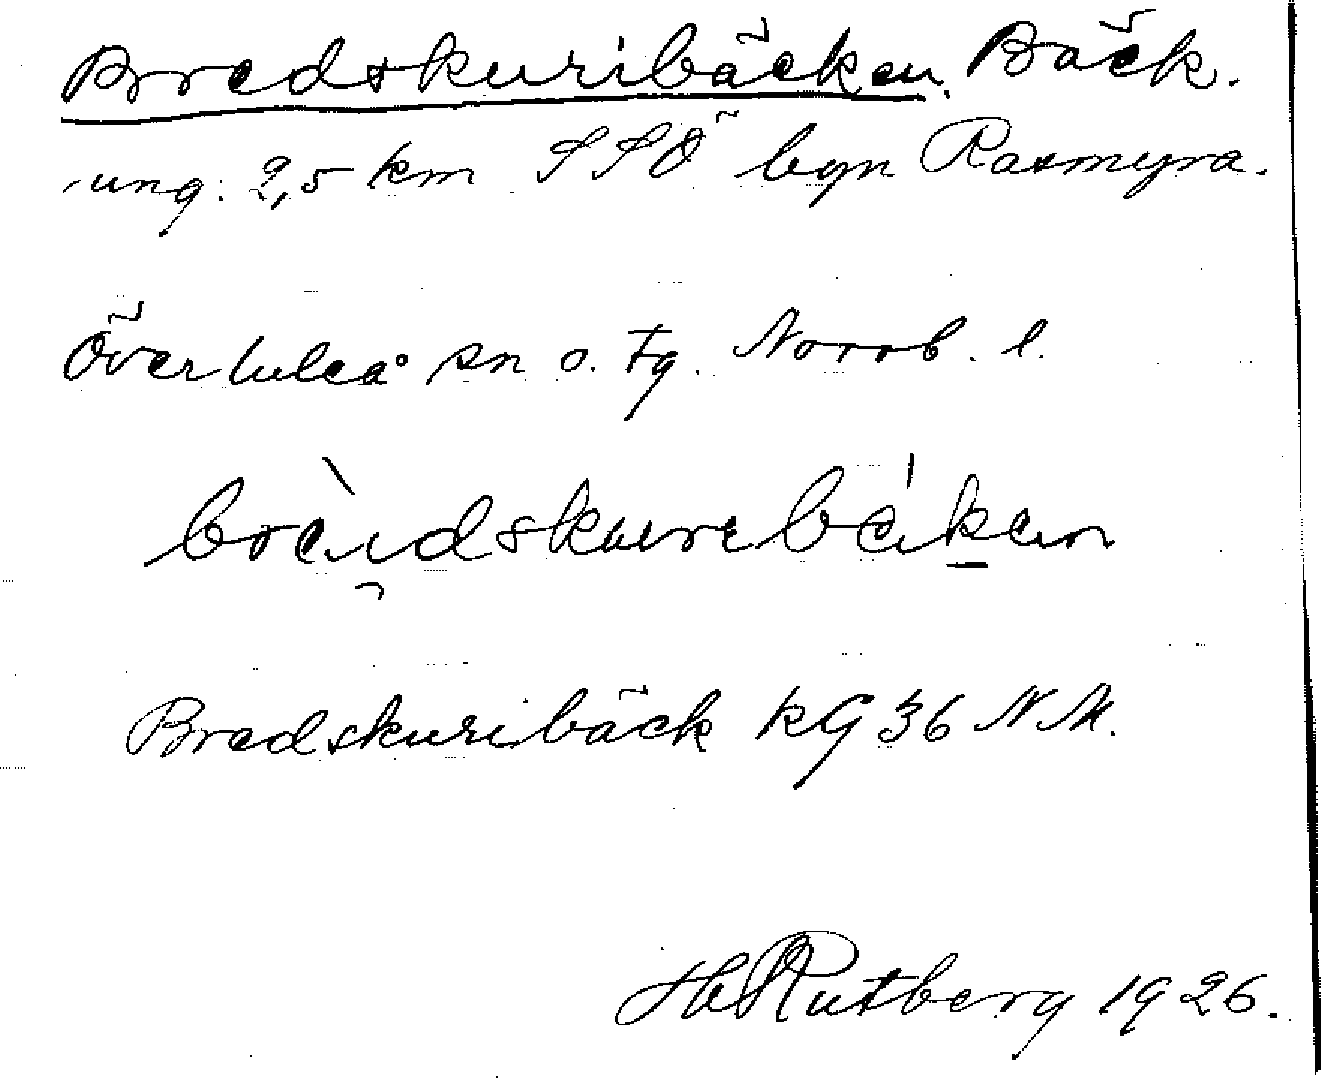 Bredskuribäcken. Bäck.
ung. 2,5 km SSÖ byn Rasmyra.
Överluleå sn o. tg. Norrb. l.
brèi̯dskuribékan
Bredskuribäck kG 36 NM.
H Rutberg 1926.